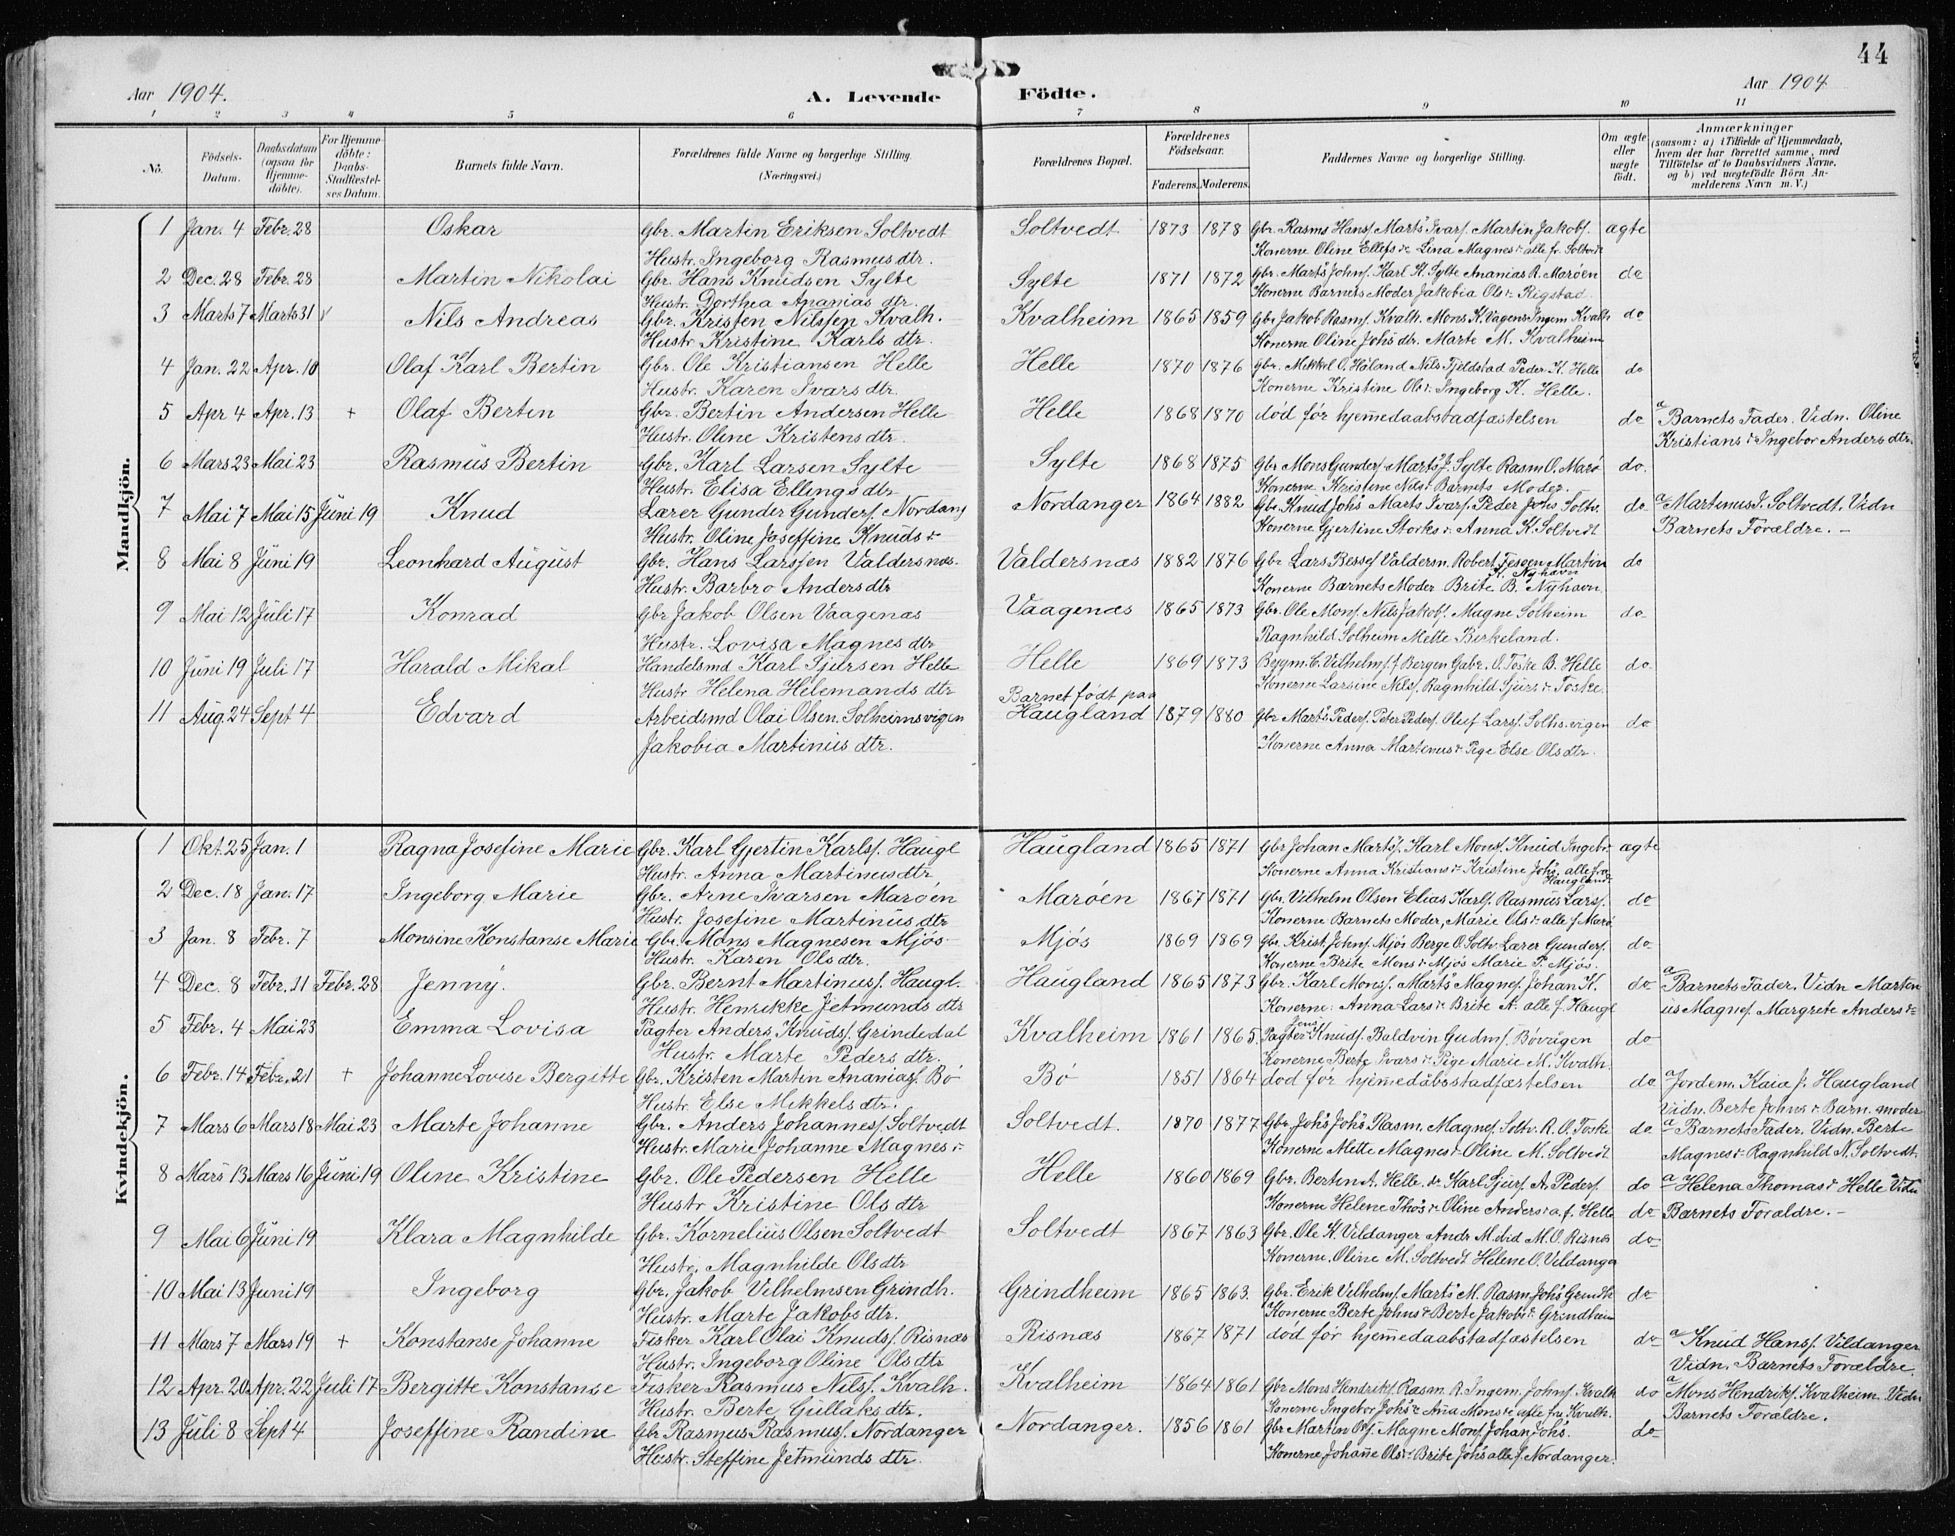 44
Aar 1904. A. Levende Födte. Aar 1904
1 2 3 4 5 6 7 8 9 10 11
No. Födsels-Datum. Daabsdatum (ogsaa for Hjemme-döbte). For Hjemme-döbte: Daabs-Stadfæstel-ses Datum. Barnets fulde Navn. Forældrenes fulde Navne og borgerlige Stilling. (Næringsvei.) Forældrenes Bopæl. Forældrenes Födselsaar. Faderens. Moderens. Faddernes Navne og borgerlige Stilling. Om ægte eller uægte födt. Anmærkninger (saasom: a) i Tilfælde af Hjemmedaab, hvem der har forrettet samme, med Tilföielse af to Daabsvidners Navne, og b) ved uægtefödte Börn An-melderens Navn m. V.)
Mandkjön.
1 Jan. 4 Febr. 28 Oskar Gbr. Martin Eriksen Soltvedt Soltvedt 1873 1878 Gbr. Rasms Hans/. Marts Ivars/. Martin Jakobs/. ægte
Hustr. Ingeborg Rasmus dtr. Konerne Oline Ellefs d. Lina Magnes d. alle f. Soltvdt
2 Dec. 28 Febr. 28 Martin Nikolai Gbr. Hans Knudsen Sylte Sylte 1871 1872 Gbr. Marts Johns/. Karl K. Sylte Ananias R. Marøen do
Hustr. Dorthea Ananias dtr. Konerne Barnets Moder Jakobia Ols d. Rigstad
3 Marts 7 Marts 31 v Nils Andreas Gbr. Kristen Nilssen Kvalh. Kvalheim 1865 1859 Gbr. Jakob Rasms/. Kvalh. Mons K. Vagens Ingem Kvalh do
Hustr. Kristine Karls dtr. Konerne Oline Johs dtr. Marte M. Kvalheim
4 Jan. 22 Apr. 10 Olaf Karl Bertin Gbr. Ole Kristiansen Helle Helle 1870 1876 Gbr. Mikkel O. Høland Nils Fjeldstad Peder K. Helle do
Hustr. Karen Ivars dtr. Konerne Kristine Ols d. Ingeborg K. Helle.
5 Apr 4 Apr. 13 + Olaf Bertin Gbr. Bertin Andersen Helle Helle 1868 1870 død før hjemmedaabstadfæstelsen do a Barnets Fader. Vidn. Oline
Hustr. Oline Kristens dtr. Kristians d. Ingebor Anders dtr.
6 Mars 23 Mai 23 Rasmus Bertin Gbr. Karl Larsen Sylte Sylte 1868 1875 Gbr Mons Gunders/. Marts J. Sylte Rasm O. Marø do.
Hustr. Elisa Ellings dtr Konerne Kristine Nils d. Barnets Moder.
7 Mai 7 Mai 15 Juni 19 Knud Lærer Gunder Gunders/. Nordang Nordanger 1864 1882 Gbr. Knud Johs Marts Ivars/. Peder Johs Soltv. do a Martinus J. Soltvedt. Vidn
Hustr. Oline Joseffine Knuds d. Konerne Gjertine Storks d. Anna K. Soltvedt Barnets Forældre. –
8 Mai 8 Juni 19 Leonhard August Gbr. Hans Larssen Valdersnæs. Valdersnæs 1882 1876 Gbr Lars Besse/. Valdersn. Robert Martin do
A. Nyhavn
Hustr. Barbro Anders dtr Konerne Barnets Moder Brite B. Nyhavn.
9 Mai 12 Juli 17 Konrad Gbr Jakob Olsen Vaagenæs Vaagenæs 1865 1873 Gbr. Ole Mons/. Nils Jakobs/. Magne Solheim do.
Hustr. Lovisa Magnes dtr Ragnhild Solheim Mette Birkeland.
10 Juni 19 Juli 17 Harald Mikal Handelsmd Karl Sjursen Helle Helle 1869 1873 Bygm. C. Vilhelms/. f Bergen Gabr. O. Toske B. Helle do
Hustr Helena Helemands dtr Konerne Larsine Nils/. Ragnhild Sjurs d. Toske.
Barnet født paa
11 Aug 24 Sept 4 Edvard Arbeidsmd Olai Olsen. Solheimsvigen Haugland 1879 1880 Gbr Marts Peders/. Peter Peders/. Oluf Lars/. Solhs.vigen do
Jakobia Martinius dtr. Konerne Anna Martenus d. Pige Else Ols dtr.
Kvindekjön.
1 Okt. 25 Jan. 1 Ragna Josefine Marie Gbr. Karl Gjertin Karls/. Haugl Haugland 1865 1871 Gbr Johan Marts/. Karl Mons/. Knud Ingebr. ægte
Hustr. Anna Martinus dtr. Konerne Anna Kristians d. Kristine Johs. alle fra
Haugland
2 Dec. 18 Jan. 17 Ingeborg Marie Gbr. Arne Ivarsen Marøen Marøen 1867 1871 Gbr. Vilhelm Olsen Elias Karls/. Rasmus Lars/. do
Hustr. Josefine Martinius dtr Konerne Barnets Moder, Marie Ols d. alle f. Marø
3 Jan. 8 Febr. 7 Monsine Konstanse Marie Gbr. Mons Magnesen Mjøs Mjøs 1869 1869 Gbr. Krist. Johns/. Mjøs Berge O. Soltv. Lærer Gunders/. do
Hustr. Karen Ols dtr. Konerne Brite Mons d. Mjøs Marie P. Mjøs.
4 Dec. 8 Febr. 11 Febr. 28 Jenny. Gbr. Bernt Martinus/. Haugl. Haugland 1865 1873 Gbr. Karl Mons/. Marts Magnes/. Johan K. do a Barnets Fader. Vidn Marten
Hustr. Henrikke Jetmunds dtr Konerne. Anna Lars d. Brite A. alle f. Haugl ius Magnes/. Margrete Anders d.
5 Febr. 4 Mai 23 Emma Lovisa Pagter Anders Knuds/. Grindedal Kvalheim 1861 1865. Pagter Jens Knuds/. Baldvin Gudms/. Bøvågen do
Hustr. Marte Peders dtr. Konerne Berte Ivars d. Pige Marie M. Kvalh.
6 Febr. 14 Febr. 21 + Johanne Lovise Bergitte Gbr. Kristen Martin Ananias/. Bø Bø 1851 1864 død før hjemedåbsstadfæstelsen do a Jordem. Kaia J. Haugland
Hustr. Else Mikkels dtr. Vidn. Berte Johns d. Barn. moder
7 Mars 6 Mars 18 Mai 23 Marte Johanne Gbr. Anders Johannes/. Soltvedt Soltvedt. 1870 1877 Gbr. Johs Johs Rasm. Magnes/. Soltv. R. O. Toske do a Barnets Fader. Vidn. Berte
Hustr. Marie Johanne Magnes d. Konerne Mette Magnes d. Oline M. Soltvedt Magnes d. Ragnhild N. Soltvedt.
8 Mars 13 Mars 16 Juni 19 Oline Kristine Gbr. Ole Pedersen Helle Helle 1860 1869 Gbr. Bertin A. Helle. Karl Sjurs/. A. Peders/. do a Helena Thomas d. Helle Vidn
Hustr Kristine Ols dtr Konerne Helene Thos d. Oline Anders d. a. f. Helle do Barnets Forældre. –
9 Mai 6 Juni 19 Klara Magnhilde Gbr. Kornelius Olsen Soltvedt Soltvedt 1867 1863 Gbr. Ole K. Vildanger Andr M. O. Risnæs do
Hustr. Magnhilde Ols dtr Konerne. Oline M. Soltvedt Helene O. Vildanger
10 Mai 13 Juni 19 Ingeborg Gbr. Jakob Vilhelmsen Grindh. Grindheim 1865 1863. Gbr. Erik Vilhelms/. Marts M. Rasm Johs Grindh do
Hustr. Marte Jakobs dtr. Konerne Berte Johns d. Berte Jakobs d. Grindheim
11 Mars 7 Mars 19 + Konstanse Johanne Fisker Karl Olai Knuds/. Risnæs Risnæs 1867 1871 død før hjemmedaabstadfæstelsen do a Knud Hans/. Vildanger
Hustr. Ingeborg Oline Ols dtr Vidn. Barnets Forældre
12 Apr. 20 Apr. 22 Juli 17 Bergitte Konstanse Fisker Rasmus Nils/. Kvalh. Kvalheim 1864 1861 Gbr Mons Hendriks/. Rasm. R. Ingem. Johns/. Kvalh do a Mons Hendriks/. Kvalheim. Vidn
Hustr. Berte Gullaks dtr. Konerne Ingebor Johs d. Ana Mons d. alle fra Kvalh. Barnets Forældre.
13 Juli 8 Sept 4 Joseffine Randine Gbr Rasmus Rasmus/. Nordanger Nordanger. 1856 1861 Gbr Martin Ols/. Magne Mons/. Johan Johs. do
Hustr. Steffine Jetmunds dtr. Konerne Johane Ols d. Brite Johs alle f. Nordanger.